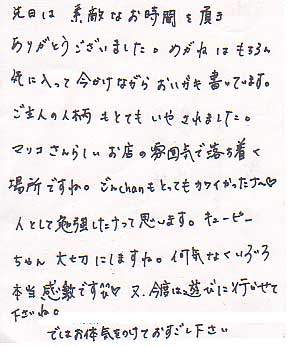 先日は 素敵なお時間を頂き
ありがとうございました。めがねはもちろん
気に入って今かけながら おハガキ書いています。
ご主人の人柄もとてもいやされました。
マリコさんらしいお店の雰囲気で落ち着く
場所ですね。ごんchanもとってもカワイかったナ〜♡
人として勉強したナって思います。キューピー
ちゃん大切にしますね。何気なくいろいろ
本当感激です♡ 又、今度は遊びに行かせて
下さいね。
ではお体気をつけておすごし下さい